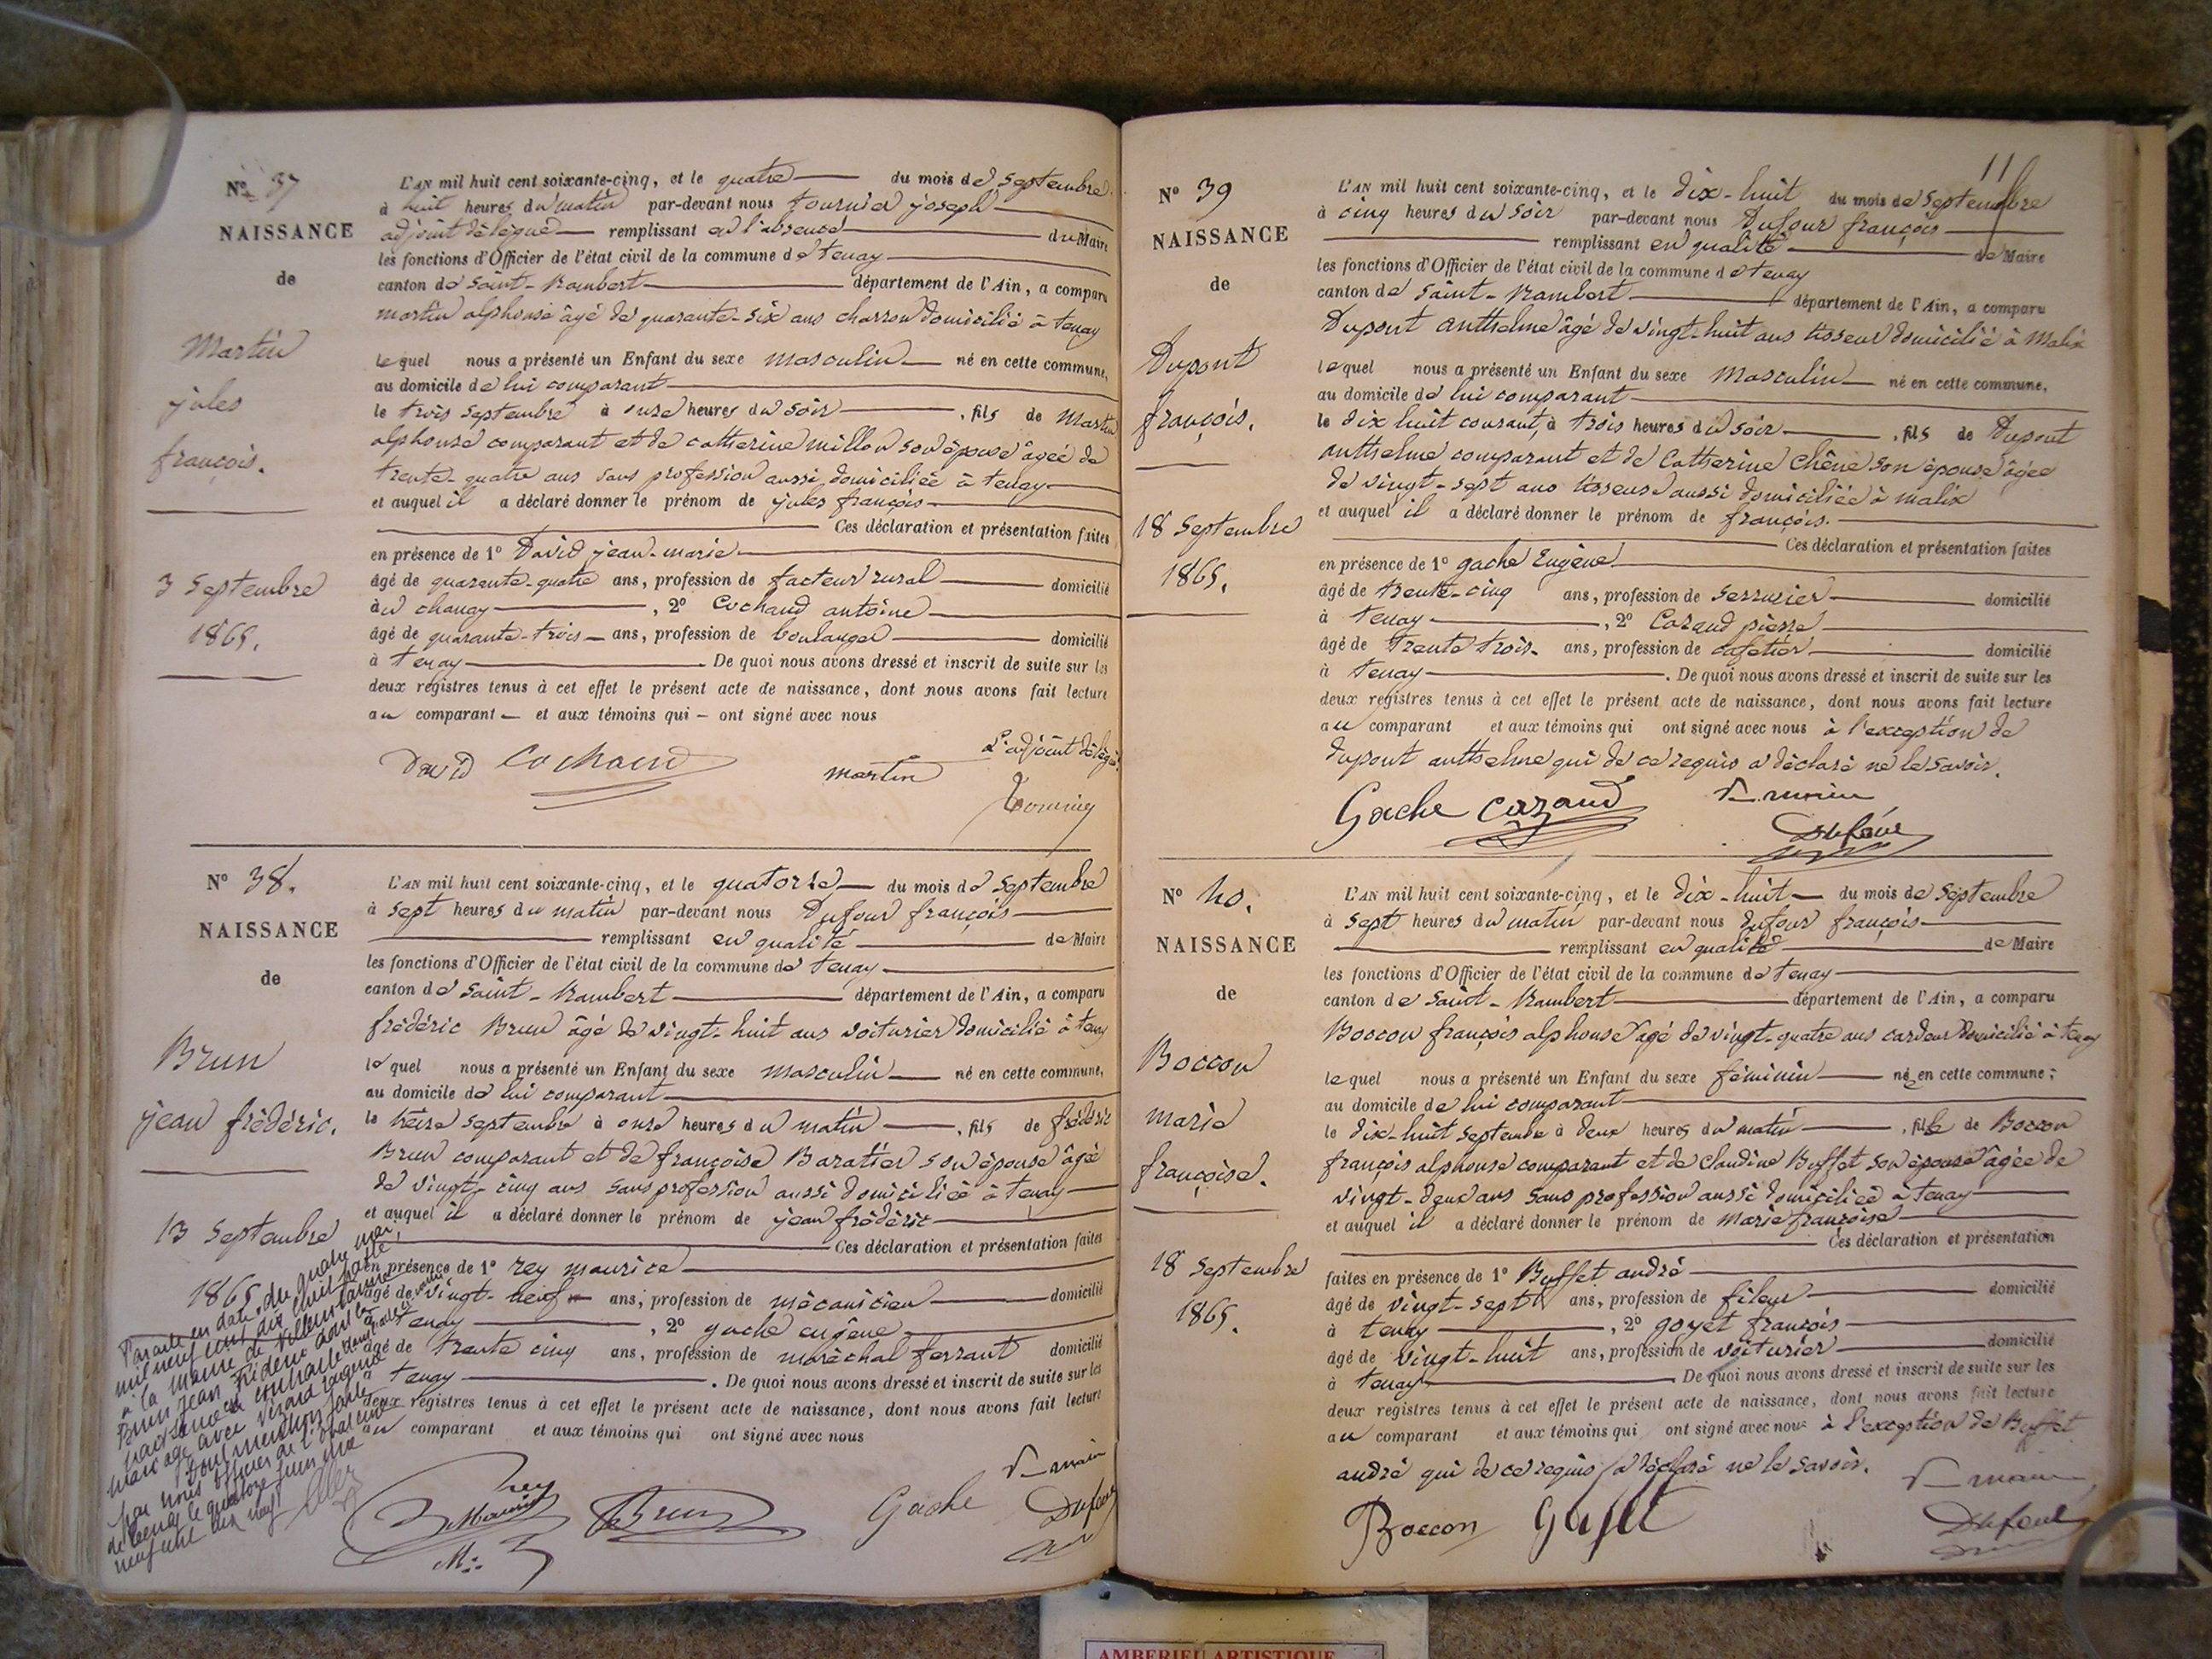 Nº 37
NAISSANCE
de
Martin
jules
françois.
3 Septembre
1865.
L'AN mil huit cent soixante-cinq, et le quatre du mois de Septembre
à huit heures du matin par-devant nous fournier joseph
adjoint délégué remplissant en l'absence du Maire
les fonctions d'Officier de l'état civil de la commune de tenay
canton de Saint-Rambert département de l'Ain, a comparu
martin alphonse âgé de quarante-six ans charron domicilié à tenay
lequel nous a présenté un Enfant du sexe masculin né en cette commune,
au domicile de lui comparant
le trois Septembre à onze heures du soir, fils de Martin
alphonse comparant et de catherine millon son épouse âgée de
trente-quatre ans sans profession aussi domiciliée à tenay
et auquel il a déclaré donner le prénom de jules françois
Ces déclaration et présentation faites
en présence de 1º David jean-marie
âgé de quarante-quatre ans, profession de facteur rural domicilié
au chanay, 2º Cochand antoine
âgé de quarante-trois ans, profession de boulanger domicilié
à tenay De quoi nous avons dressé et inscrit de suite sur les
deux registres tenus à cet effet le présent acte de naissance, dont nous avons fait lecture
au comparant et aux témoins qui ont signé avec nous
L'adjoint délégué
David Cochand martin
Nº 38.
NAISSANCE
de
Brun
jean frédéric.
13 Septembre
1865
L'AN mil huit cent soixante-cinq, et le quatorze du mois de Septembre
à sept heures du matin par-devant nous Dufour françois
remplissant en qualité de Maire
les fonctions d'Officier de l'état civil de la commune de tenay
canton de Saint-Rambert département de l'Ain, a comparu
frédéric Brun âgé de vingt-huit ans voiturier domicilié à tenay
lequel nous a présenté un Enfant du sexe masculin né en cette commune,
au domicile de lui comparant
le treize septembre à onze heures du matin, fils de frédéric
Brun comparant et de françoise Baratier son épouse âgé
de vingt-cinq ans sans profession aussi domiciliée à tenay
et auquel il a déclaré donner le prénom de jean frédéric
Ces déclaration et présentation faites
en présence de 1º rey maurice
âgé de vingt-neuf ans, profession de mécanicien domicilié
tenay, 2º gache eugène
âgé de trente cinq ans, profession de maréchal ferrant domicilié
tenay. De quoi nous avons dressé et inscrit de suite sur les
deux registres tenus à cet effet le présent acte de naissance, dont nous avons fait lecture
au comparant et aux témoins qui ont signé avec nous
Par acte en date du quatre mai
mil neuf cent dix huit passé
à la mairie de
Brun Jean Frédéric dont la
naissance contracté
mariage avec
Dont mention faite
par nous officier de l'état civil
de tenay le quatorze juin mil
neuf cent dix neuf
rey
Maurice Brun Gache
Dufour
11
Nº 39
NAISSANCE
de
Dupont
françois.
18 Septembre
1865.
L'AN mil huit cent soixante-cinq, et le dix-huit du mois de Septembre
à cinq heures du soir par-devant nous Dufour françois
remplissant en qualité de Maire
les fonctions d'Officier de l'état civil de la commune de tenay
canton de Saint-Rambert département de l'Ain, a comparu
Dupont anthelme âgé de vingt-huit ans tisseur domicilié à Malix
lequel nous a présenté un Enfant du sexe Masculin né en cette commune,
au domicile de lui comparant
le dix huit courant, à trois heures du soir, fils de Dupont
anthelme comparant et de Catherine Chêne son épouse âgée
de vingt-sept ans tisseuse aussi domiciliée à malix
et auquel il a déclaré donner le prénom de françois.
Ces déclaration et présentation faites
en présence de 1º gache Eugène
âgé de trente-cinq ans, profession de serrurier domicilié
à tenay, 2º Cazaud pierre
âgé de trente trois. ans, profession de cafetier domicilié
à tenay. De quoi nous avons dressé et inscrit de suite sur les
deux registres tenus à cet effet le présent acte de naissance, dont nous avons fait lecture
au comparant et aux témoins qui ont signé avec nous à l'exception de
Dupont anthelme qui de ce requis a déclaré ne le savoir.
Gache Cazaud
Dufour
Nº 40.
NAISSANCE
de
Boccon
marie
françoise.
18 Septembre
1865.
L'AN mil huit cent soixante-cinq, et le dix-huit du mois de Septembre
à sept heures du matin par-devant nous Dufour françois
remplissant en qualité de Maire
les fonctions d'Officier de l'état civil de la commune de tenay
canton de Saint-Rambert département de l'Ain, a comparu
Boccon françois alphonse âgé de vingt-quatre ans cardeur domicilié à tenay
lequel nous a présenté un Enfant du sexe féminin née en cette commune,
au domicile de lui comparant
le dix-huit septembre à deux heures du matin, fille de Boccon
françois alphonse comparant et de claudine Buffet son épouse âgée de
vingt-deux ans sans profession aussi domiciliée à tenay
et auquel il a déclaré donner le prénom de Marie françoise
Ces déclaration et présentation
faites en présence de 1º Buffet andré
âgé de vingt-sept ans, profession de fileur domicilié
à tenay, 2º goyet françois
âgé de vingt-huit ans, profession de voiturier domicilié
à tenay De quoi nous avons dressé et inscrit de suite sur les
deux registres tenus à cet effet le présent acte de naissance, dont nous avons fait lecture
au comparant et aux témoins qui ont signé avec nous à l'exception de Buffet
andré qui de ce requis a déclaré ne le savoir.
Boccon Goyet
Dufour
AMBERIEU ARTISTIQUE